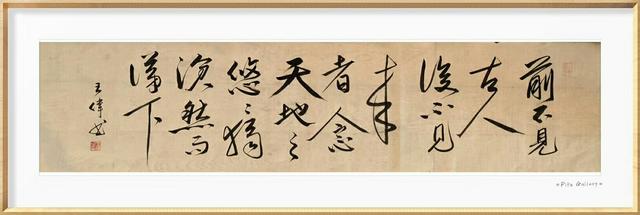 前不見
古人
後不見
來
者念
天地之
悠〻獨
愴然而
涕下
王偉書
Gallery